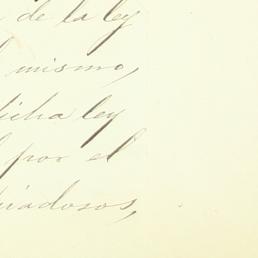 de la ley
mismo,
dicha ley
por el
piadosos,